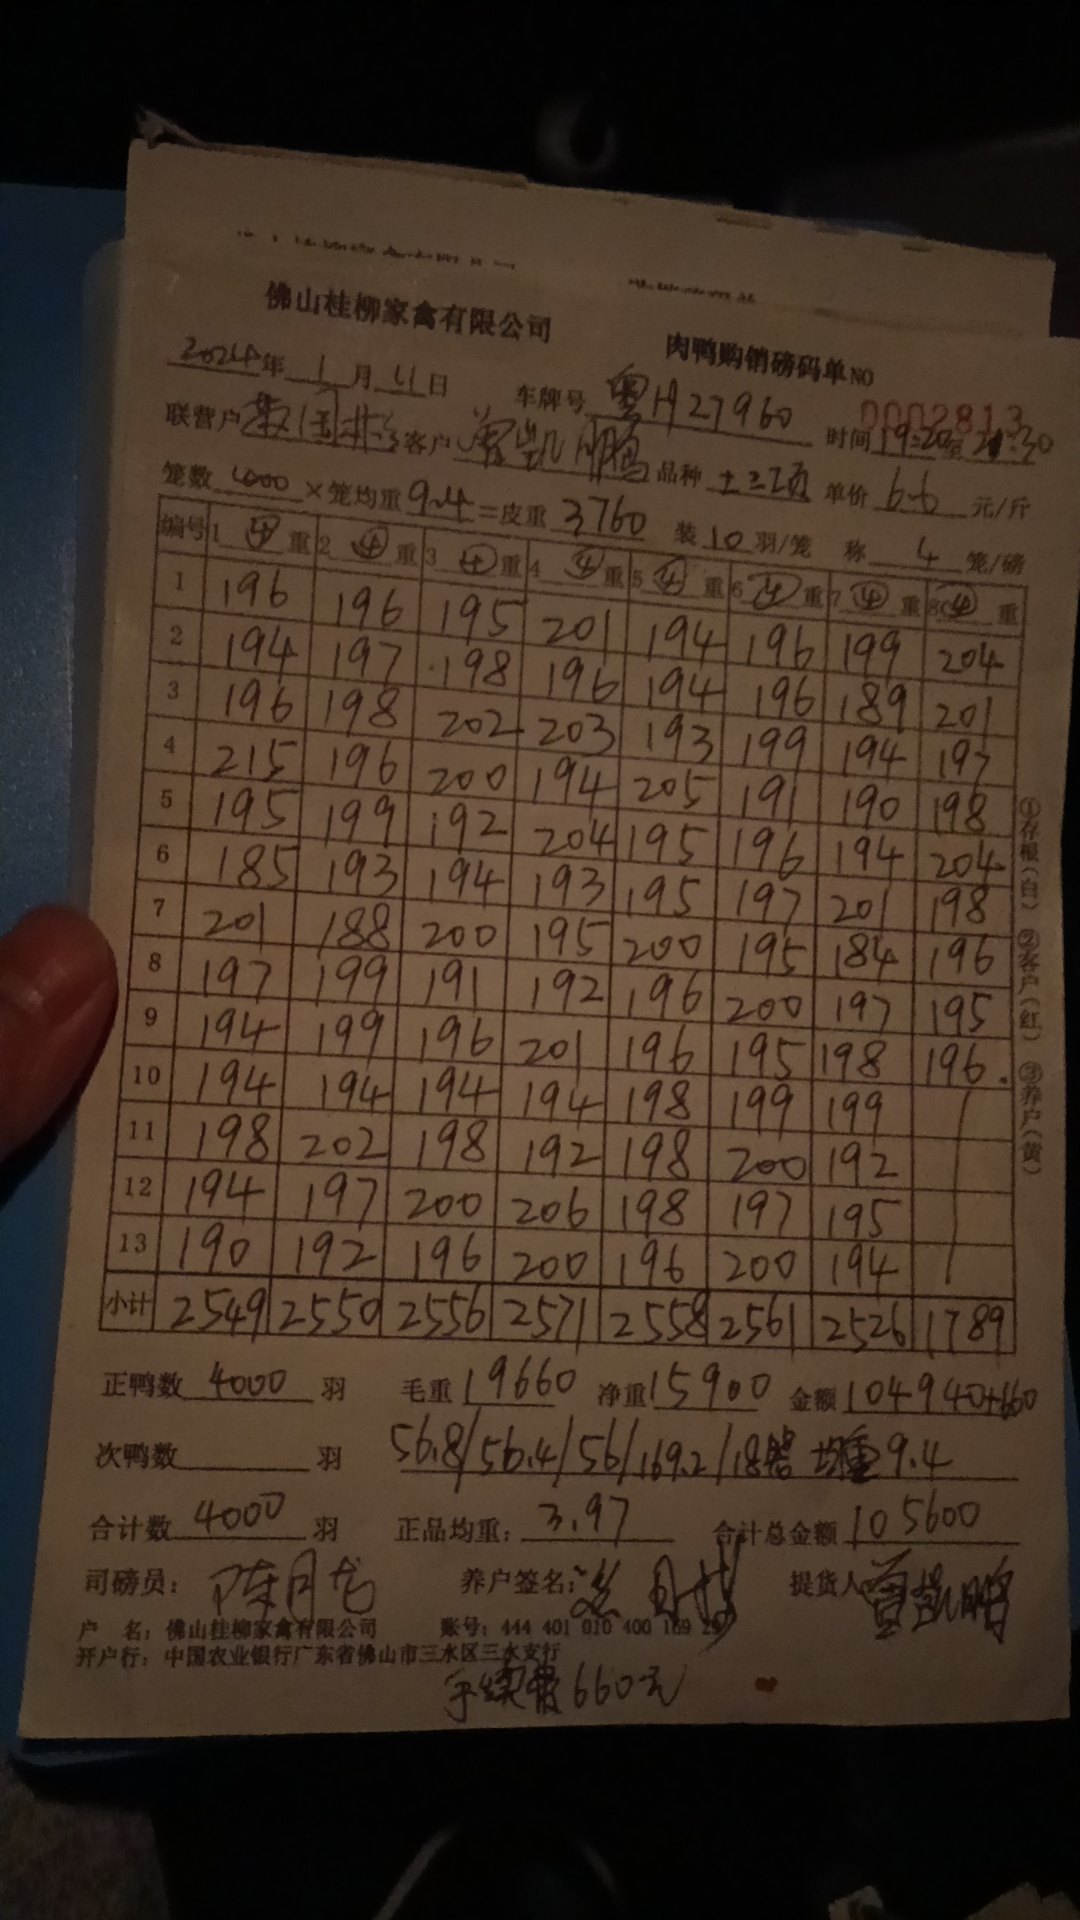 佛山桂柳家禽有限公司 肉鸭购销磅码单NO 0002813
2024年 1月 11日 车牌号 粤H27960 时间 19:20至21:30
联营户 客户 曾凯鹏 品种 土三项 单价 6.6 元/斤
笼数 4000 ×笼均重 9.4 =皮重 3760 装 10 羽/笼 称 4 笼/磅
编号 1 ④ 重 2 ④ 重 3 ④ 重 4 ④ 重 5 ④ 重 6 ④ 重 7 ④ 重 8 ④ 重
1 196 196 195 201 194 196 199 204
2 194 197 198 196 194 196 189 201
3 196 198 202 203 193 199 194 197
4 215 196 200 194 205 191 190 198
5 195 199 192 204 195 196 194 204
6 185 193 194 193 195 197 201 198
7 201 188 200 195 200 195 184 196
8 197 199 191 192 196 200 197 195
9 194 199 196 201 196 195 198 196.
10 194 194 194 194 198 199 199
11 198 202 198 192 198 200 192
12 194 197 200 206 198 197 195
13 190 192 196 200 196 200 194
小计 2549 2550 2556 2571 2558 2561 2526 1789
①存根(白) ②客户(红) ③养户(黄)
正鸭数 4000 羽 毛重 19660 净重 15900 金额 104940+660
次鸭数 羽 56.8/56.4/56/169.2/18 均重 9.4
合计数 4000 羽 正品均重: 3.97 合计总金额 105600
司磅员: 陈月龙 养户签名: 提货人 曾凯鹏
户 名: 佛山桂柳家禽有限公司 账号: 444 401 010 400 169
开户行: 中国农业银行广东省佛山市三水区三水支行
手续费660元